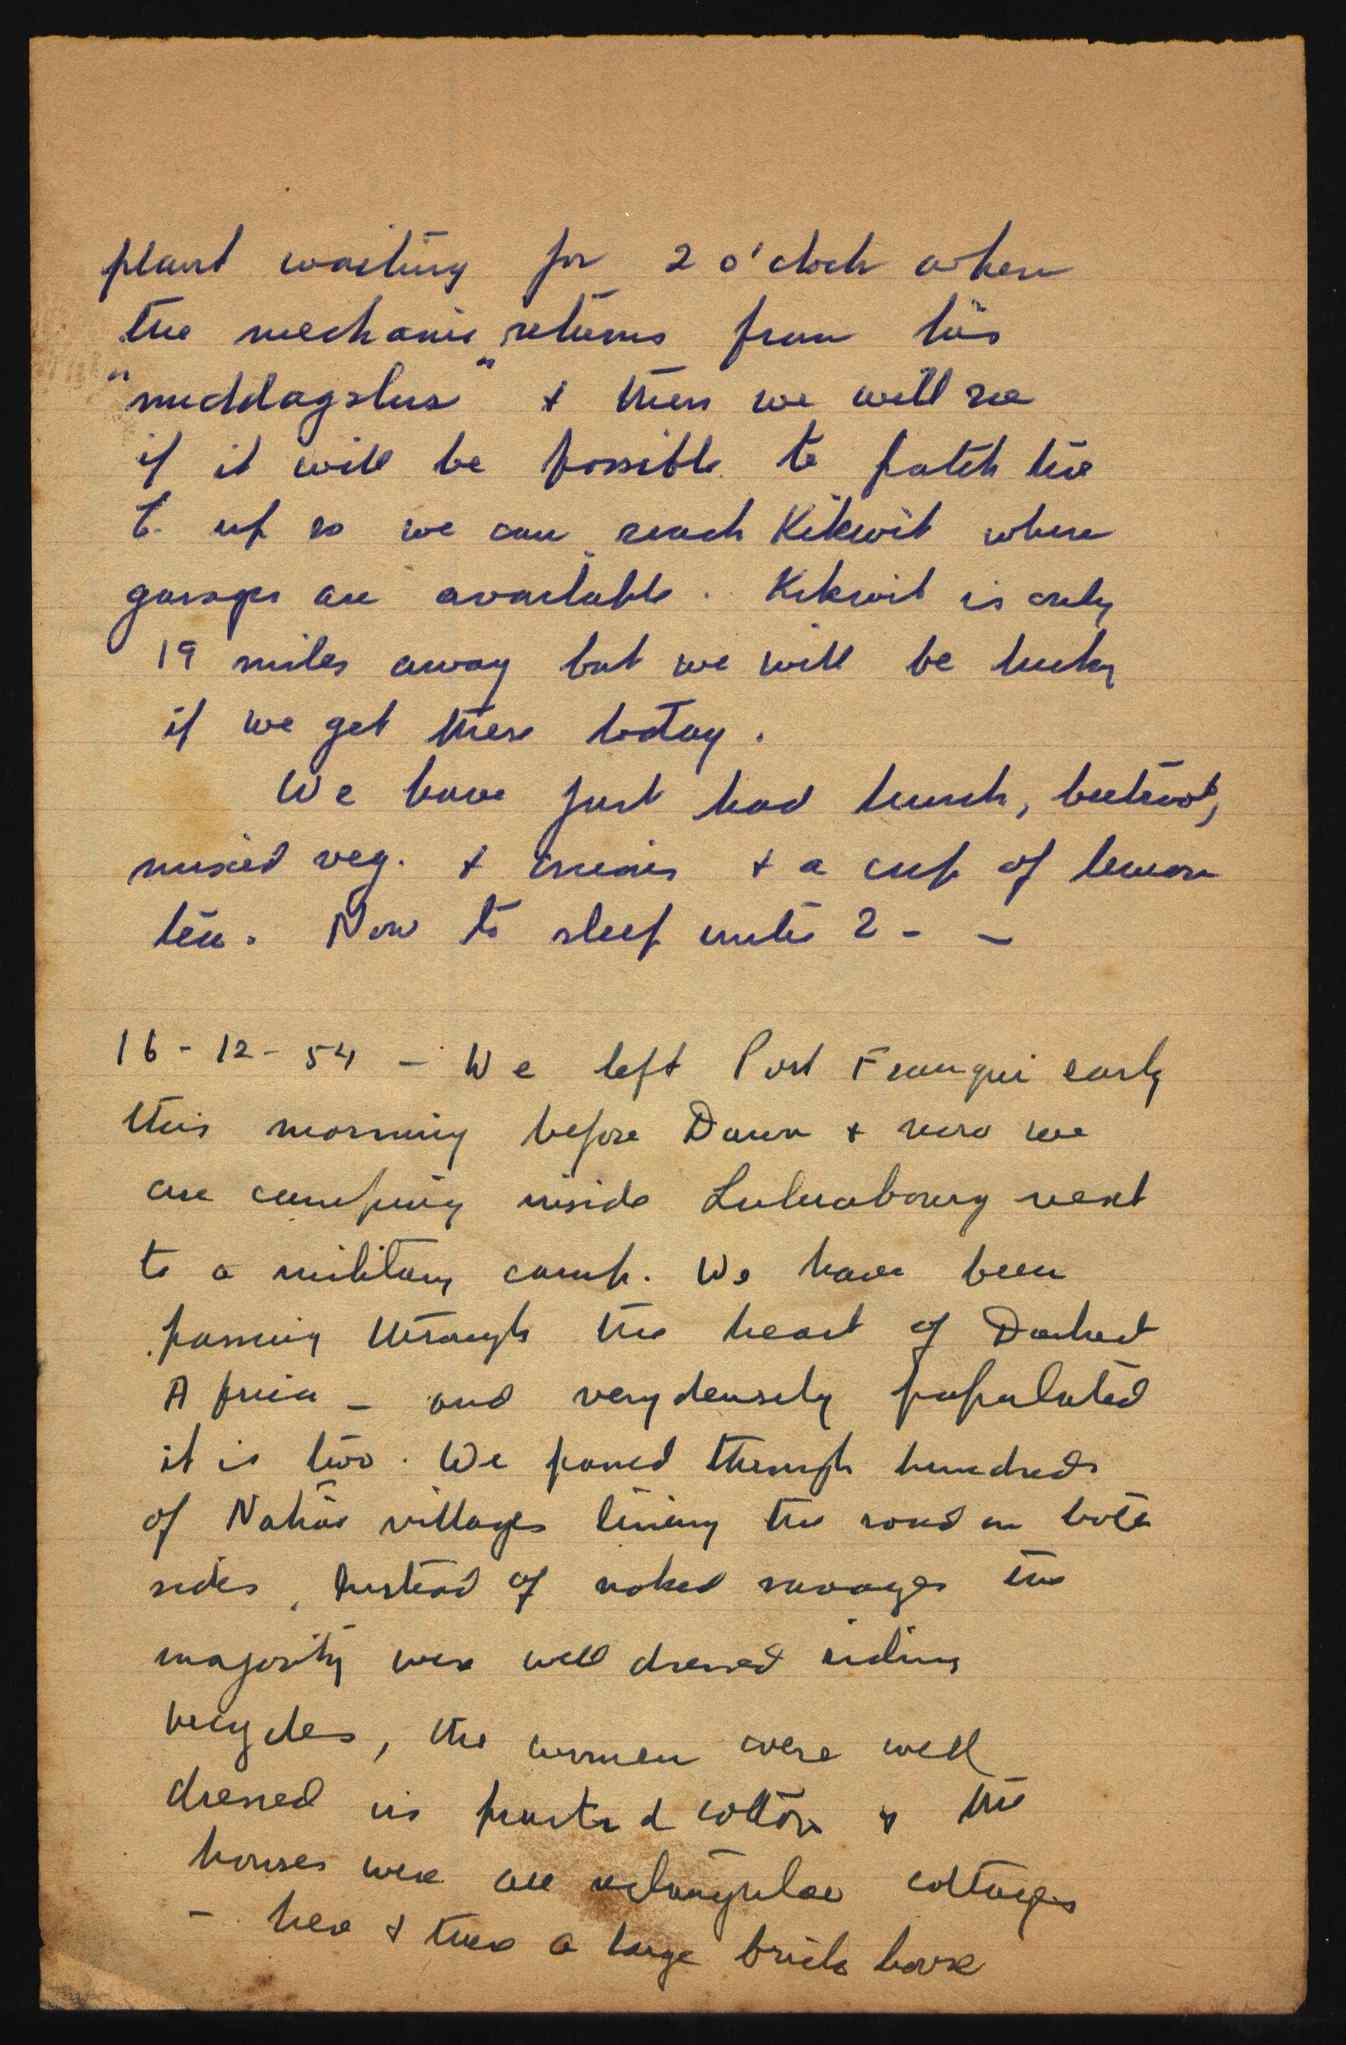 plant waiting for 2 o'clock when
the mechanic returns from his
"middagslus" + then we will see
if it will be possible to patch the
t. up so we can reach Kikwit where
garages are available. Kikwit is only
19 miles away but we will be lucky
if we get there today.
We have just had lunch, beetroot,
mixed veg. + onions + a cup of lemon
tea. Now to sleep until 2 - -
16-12-54 - We left Port Franqui early
this morning before Dawn + now we
are camping inside Luluabourg next
to a military camp. We have been
passing through the heart of Darkest
Africa - and very densely populated
it is too. We passed through hundreds
of Native villages lining the road on both
sides. Instead of naked savages the
majority were well dressed riding
bicycles, the women were well
dressed in printed cotton & the
houses were all rectangular cottages
- here & there a large brick house